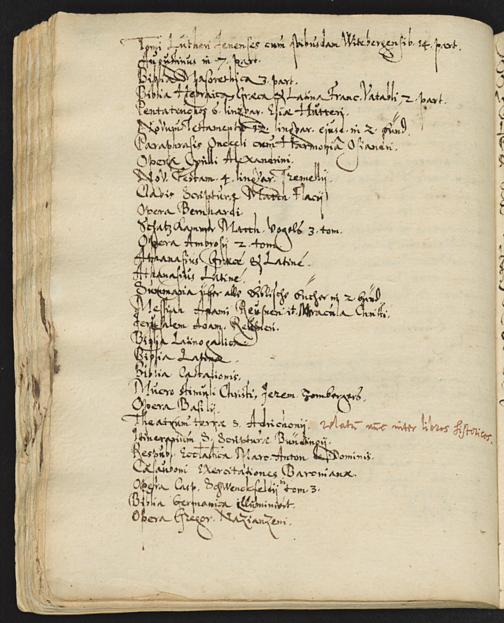 Tomi Lutheri Jenenses cum quibusdam Witebergensib. 14. part.
Augustinus in 7. part.
Biblia Masoretica 3. part.
Biblia Hebraica Graeca & Latina Franc. Vatabli 2. part.
Pentateuchus 6. linguar. Eliae Hutteri.
Novum Testamentum 12 linguar. ejusd. in 2. bünd.
Paraphrasis Onceli cum Harmonia Osiandri.
Opera Cyrilli Alexandrini.
Nov. Testam. 4. linguar. Tremellij
Clavis Scripturae Matth. Flacij
Opera Bernhardi
Schatzkammer Matth. Vogels 3. tom.
Opera Ambrosij 2. tom.
Athanasius Graecè & Latinè.
Athanasius Latinè.
Summaria über alle Biblische Bücher in 2 bünd
Messias Adami Reusneri it. Miracula Christi.
Jerusalem Adam. Reusneri.
Biblia Latinogallica
Biblia Latina
Biblia Castalionis.
Mucro stimuli Christi, Jerem.
Opera Basilij.
Theatrum terrae S. Adrichomij. relatum nunc inter libros historicos.
Itinerarium S. Scripturae Buntingij.
Respub. Ecclastica Marc. Anton de Dominis.
Casauboni Exercitationes Baronianae.
Opera Casp. Schwenckfeldij tom 3.
Biblia Germanica illuminirt.
Opera Gregor. Nazianzeni.